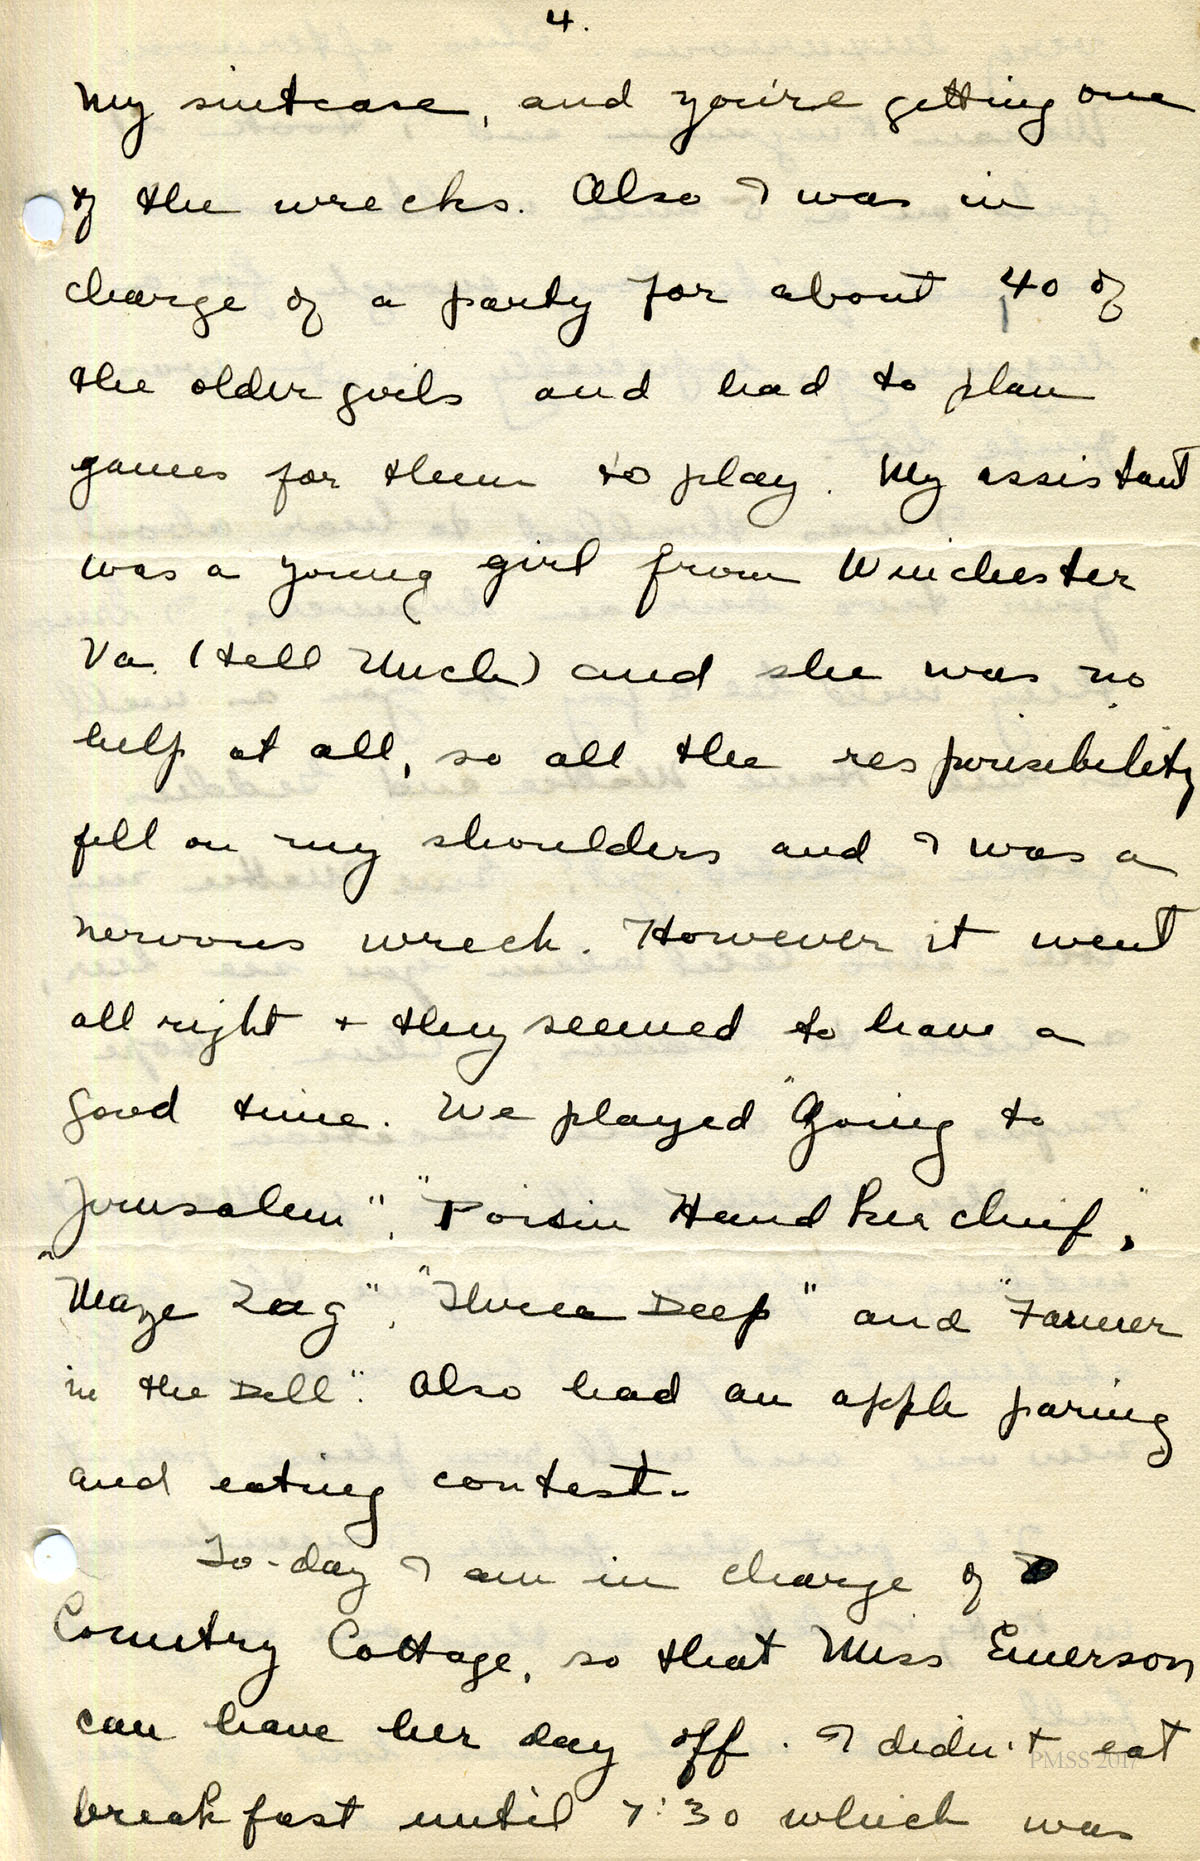 4.
My suitcase, and you're getting one
of the wrecks. Also I was in
charge of a party for about 40 of
the older girls and had to plan
games for them to play. My assistant
was a young girl from Winchester
Va. (tell Uncle) and she was no
help at all, so all the responsibility
fell on my shoulders and I was a
nervous wreck. However it went
all right + they seemed to have a
good time. We played "Going to
Jerusalem", "Poison Handkerchief,"
"Maze Tag", "Three Deep" and "Farmer
in the Dell". Also had an apple paring
and eating contest.
To-day I am in charge of
Country Cottage, so that Miss Emerson
can have her day off. I didn't eat
breakfast until 7:30 which was
PMSS 2017